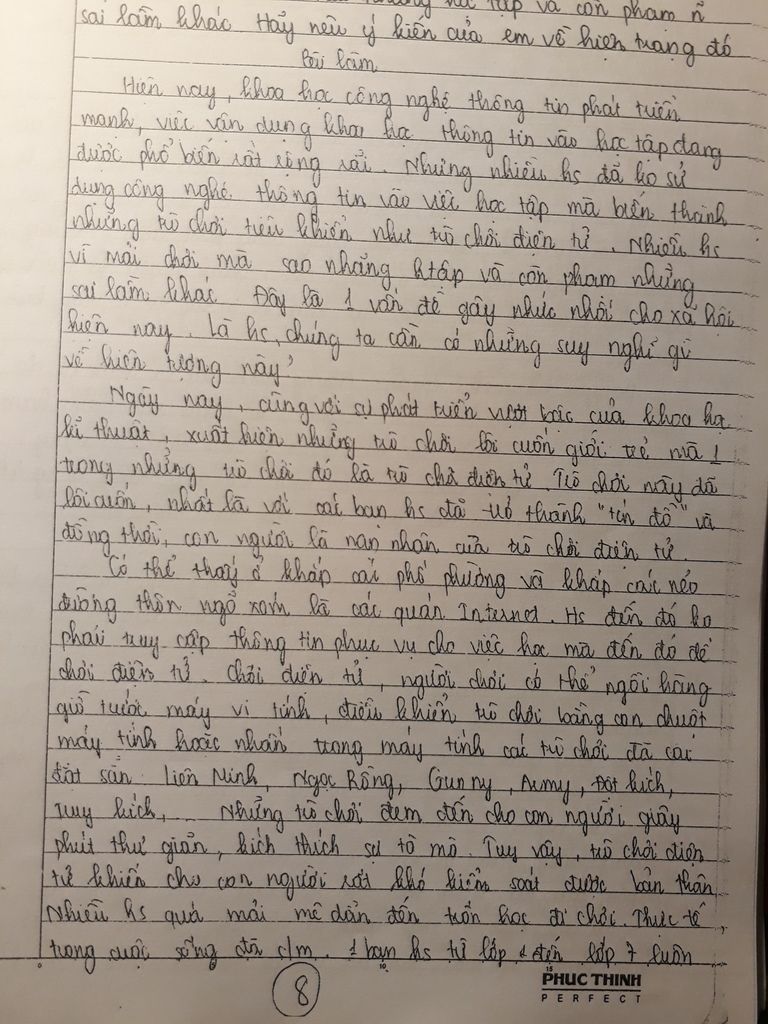 tập và còn phạm n
sai lầm khác Hãy nêu ý kiến của em về hiện trạng đó
Bài làm
Hiện nay, khoa học công nghệ thông tin phát triển
mạnh, việc vận dụng khoa học thông tin vào học tập đang
được phổ biến rất rộng rãi. Nhưng nhiều hs đã ko sử
dụng công nghệ thông tin vào việc học tập mà biến thành
những trò chơi tiêu khiển như trò chơi điện tử. Nhiều hs
vì mải chơi mà sao nhãng htập và còn phạm những
sai lầm khác Đây là 1 vấn đề gây nhức nhối cho xã hội
hiện nay. Là hs, chúng ta cần có những suy nghĩ gì
về hiện tượng này?
Ngày nay, cùng với sự phát triển vượt bậc của khoa học
kĩ thuật, xuất hiện những trò chơi lôi cuốn giới trẻ mà 1
trong những trò chơi đó là trò chơi điện tử. Trò chơi này đã
lôi cuốn, nhất là với các bạn hs đã trở thành "tín đồ" và
đồng thời, con người là nạn nhân của trò chơi điện tử.
Có thể thấy ở khắp các phố phường và khắp các nẻo
đường thôn ngõ xóm là các quán Internet. Hs đến đó ko
phải truy cập thông tin phục vụ cho việc học mà đến đó để
chơi điện tử. Chơi điện tử, người chơi có thể ngồi hàng
giờ trước máy vi tính, điều khiển trò chơi bằng con chuột
máy tính hoặc nhấn trong máy tính các trò chơi đã cài
đặt sẵn Liên Minh, Ngọc Rồng, Gunny, Army, Đột kích,
Truy kích, ... Những trò chơi đem đến cho con người giây
phút thư giãn, kích thích sự tò mò. Tuy vậy, trò chơi điện
tử khiến cho con người rất khó kiểm soát được bản thân
Nhiều hs quá mải mê dẫn đến trốn học đi chơi. Thực tế,
trong cuộc sống đã c/m. 1 bạn hs từ lớp 1 đến lớp 7 luôn
8
15
10
PHUC THINH
PERFECT